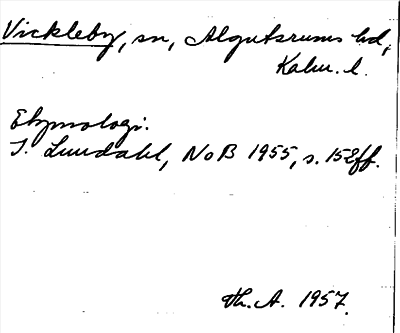 Vickleby, sn, Algutsrums hd,
Kalm. l.
Etymologi.
I. Lundahl, NoB 1955, s. 152ff.
Th. A. 1957.